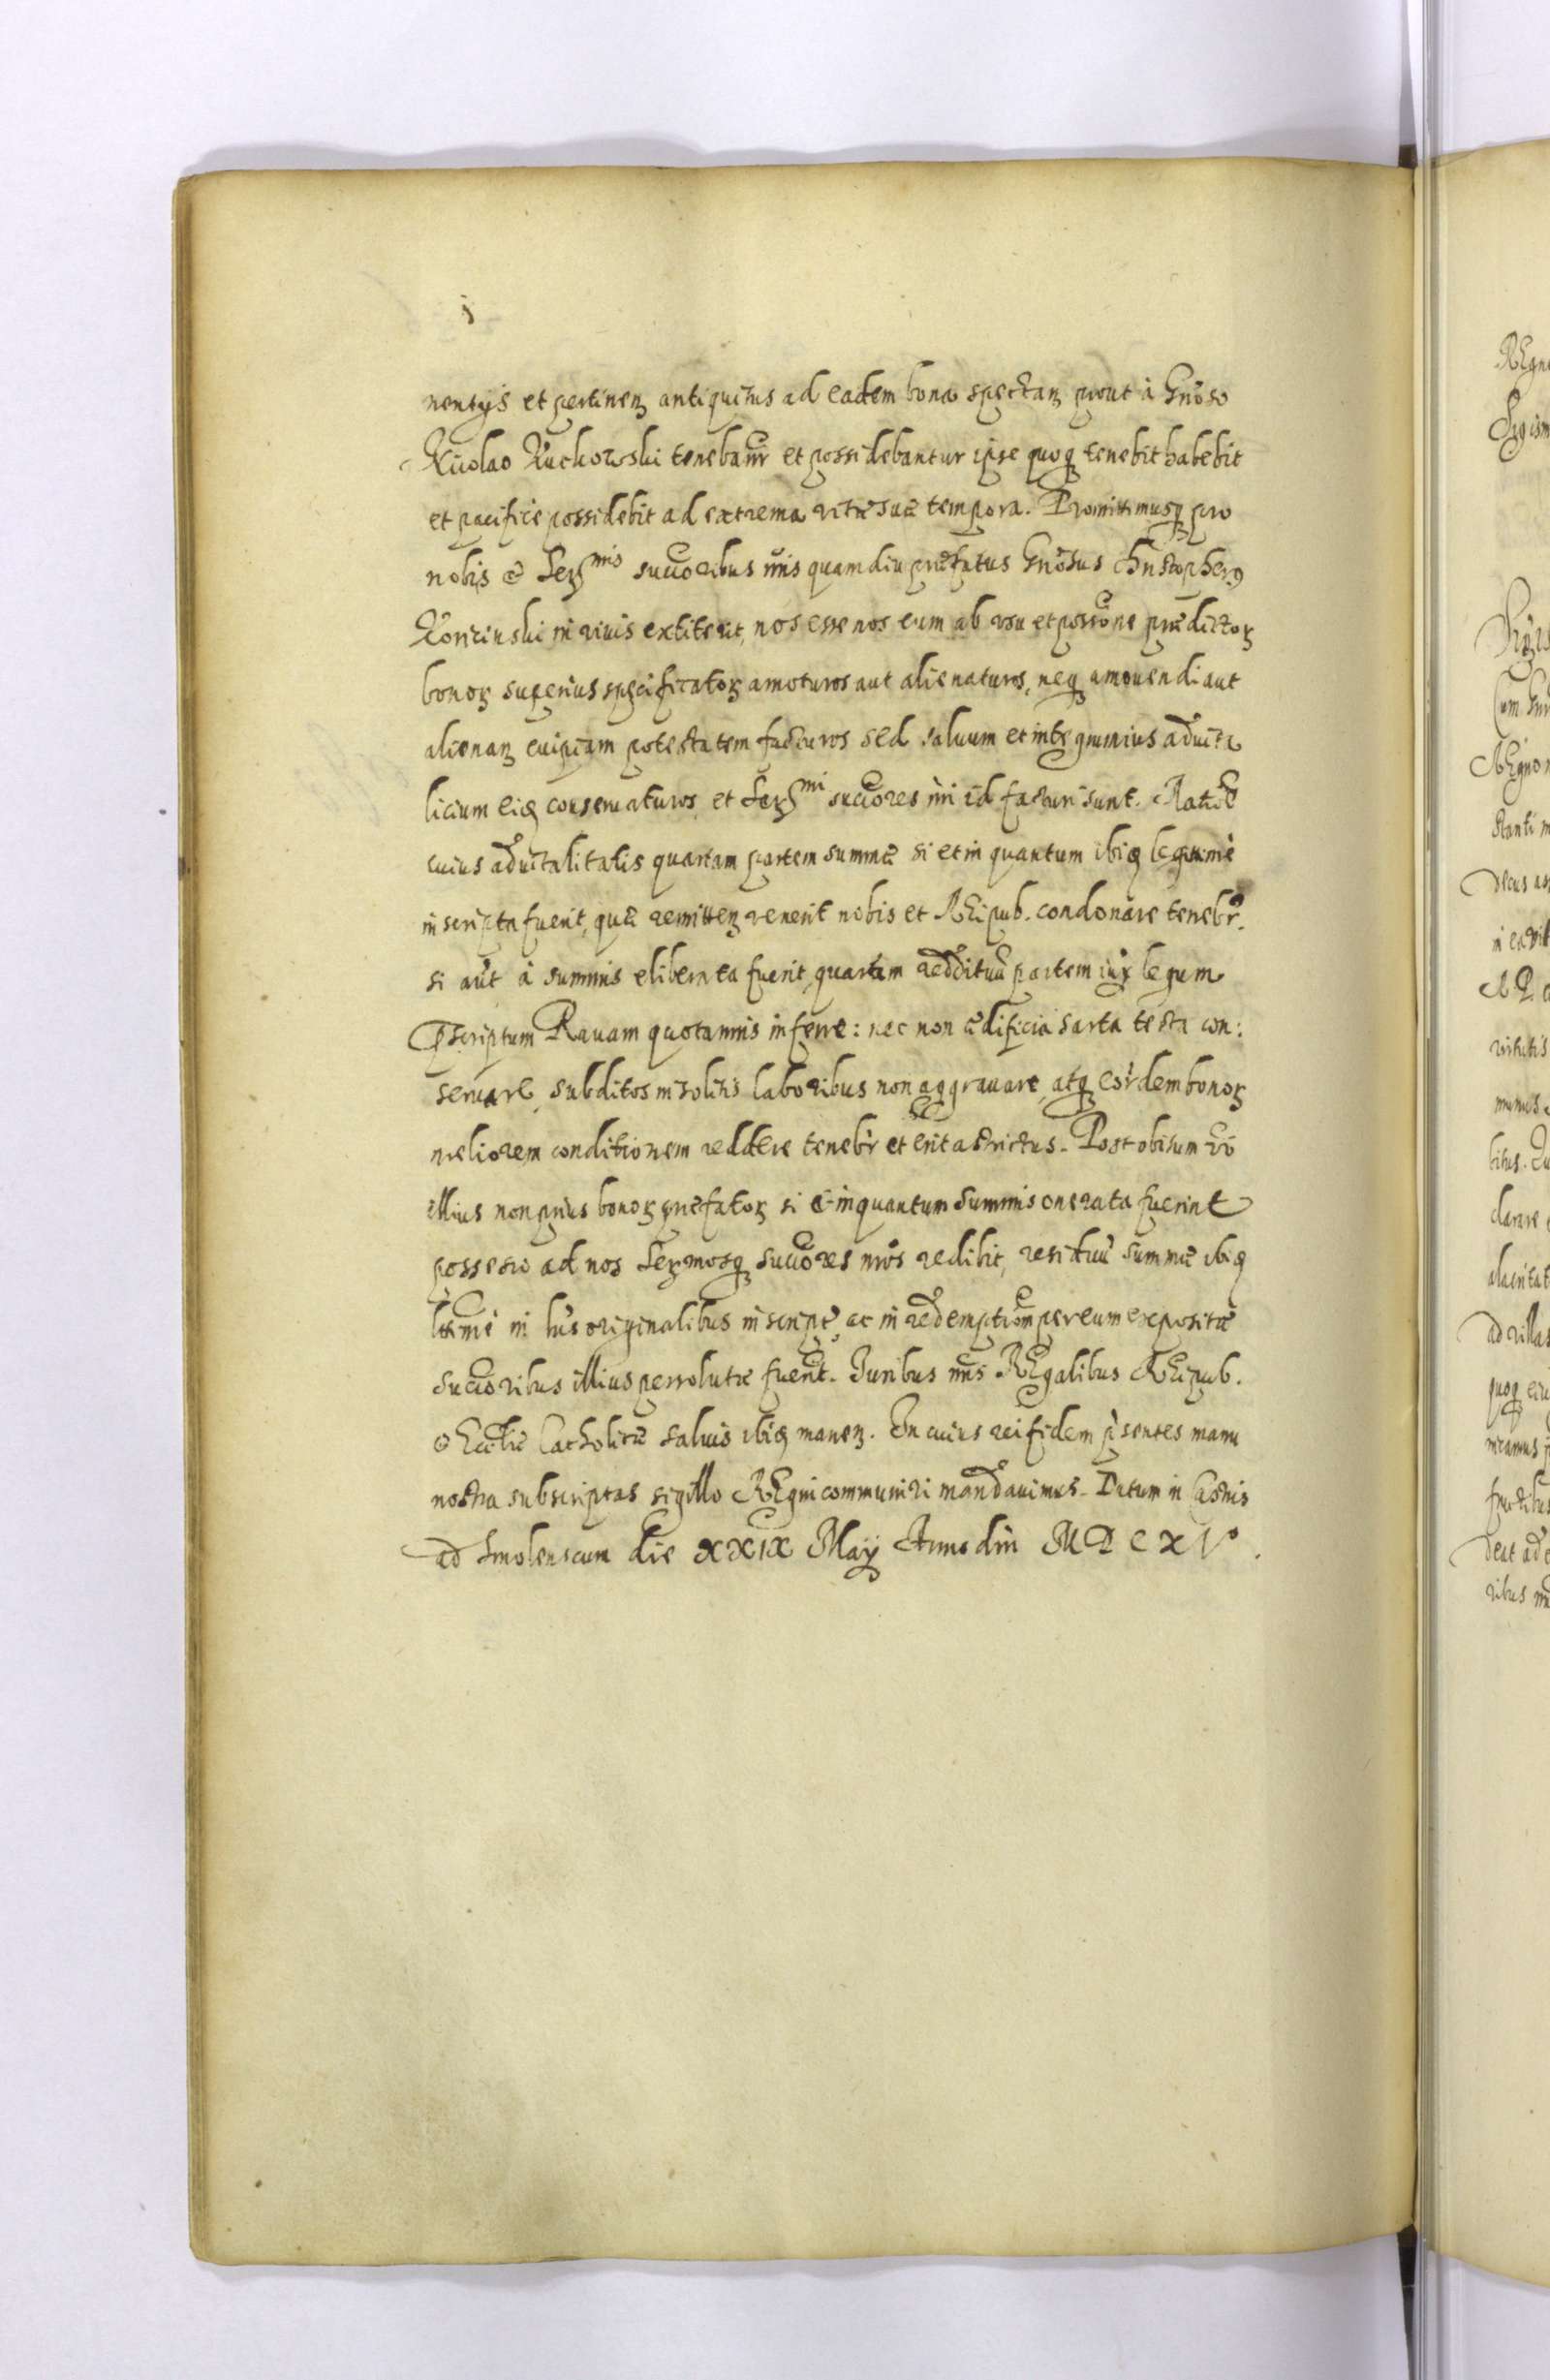 nentijs et pertinen antiquitus ad eadem bona spectan prout à Gnoso
Nicolao Ruchowski tenebantur et possidebantur ipse quoq tenebit habebit
et pacifice possidebit ad extrema vitæ suæ tempora. Promittimusq pro
nobis & Sermis succoribus nris quamdiu præfatus Gnosus Christopherus
in viuis extiterit, nos esse nos eum ab vsu et possone prædictor
bonor superius specificator amoturos aut alienaturos, neq amouendi aut
alienan cuipiam potestatem facturos sed saluum et integrum ius aduita
licium eius conseruaturos, et Sermi succores nri id facturi sunt. Ratione
cuius aduitalitatis quartam partem summæ si et in quantum ibid legitimè
inscripta fuerit, quæ remitten venerit nobis et REipub. condonare tenebr.
si aut à summis eliberata fuerit, quartam reddituu partem iux legum
pscriptum Rauam quotannis inferre: nec non ædificia sarta tecta con:
seruare, subditos insolitis laboribus non aggrauare, atq eordem bonor
meliorem conditionem reddere tenebr et erit astrictus. Post obitum vo
illius non prius bonor præfator si & inquantum summis onerata fuerint
possessio ad nos Sermosq succores nros redibit, residuu summæ ibid
ltime in lris originalibus inscriptæ, ac in redemptionem per eum expositæ
succoribus illius persolutæ fuerit. Juribus nris REgalibus REipub.
& Eccliæ Catholicæ saluis ibid manen. In cuius rei fidem psentes manu
nostra subscriptas sigillo REgni communiri mandauimus. Datum in Castris
ad Smolenscum die XXIX Maij Anno dni MDCXI°.
REgni
Sigism
Cum
REgno
stanti m
decus
virtutis
minus
bitus.
clarare
alacritat
ad villas
quoq eiu
fructibus
deat ad
ribus